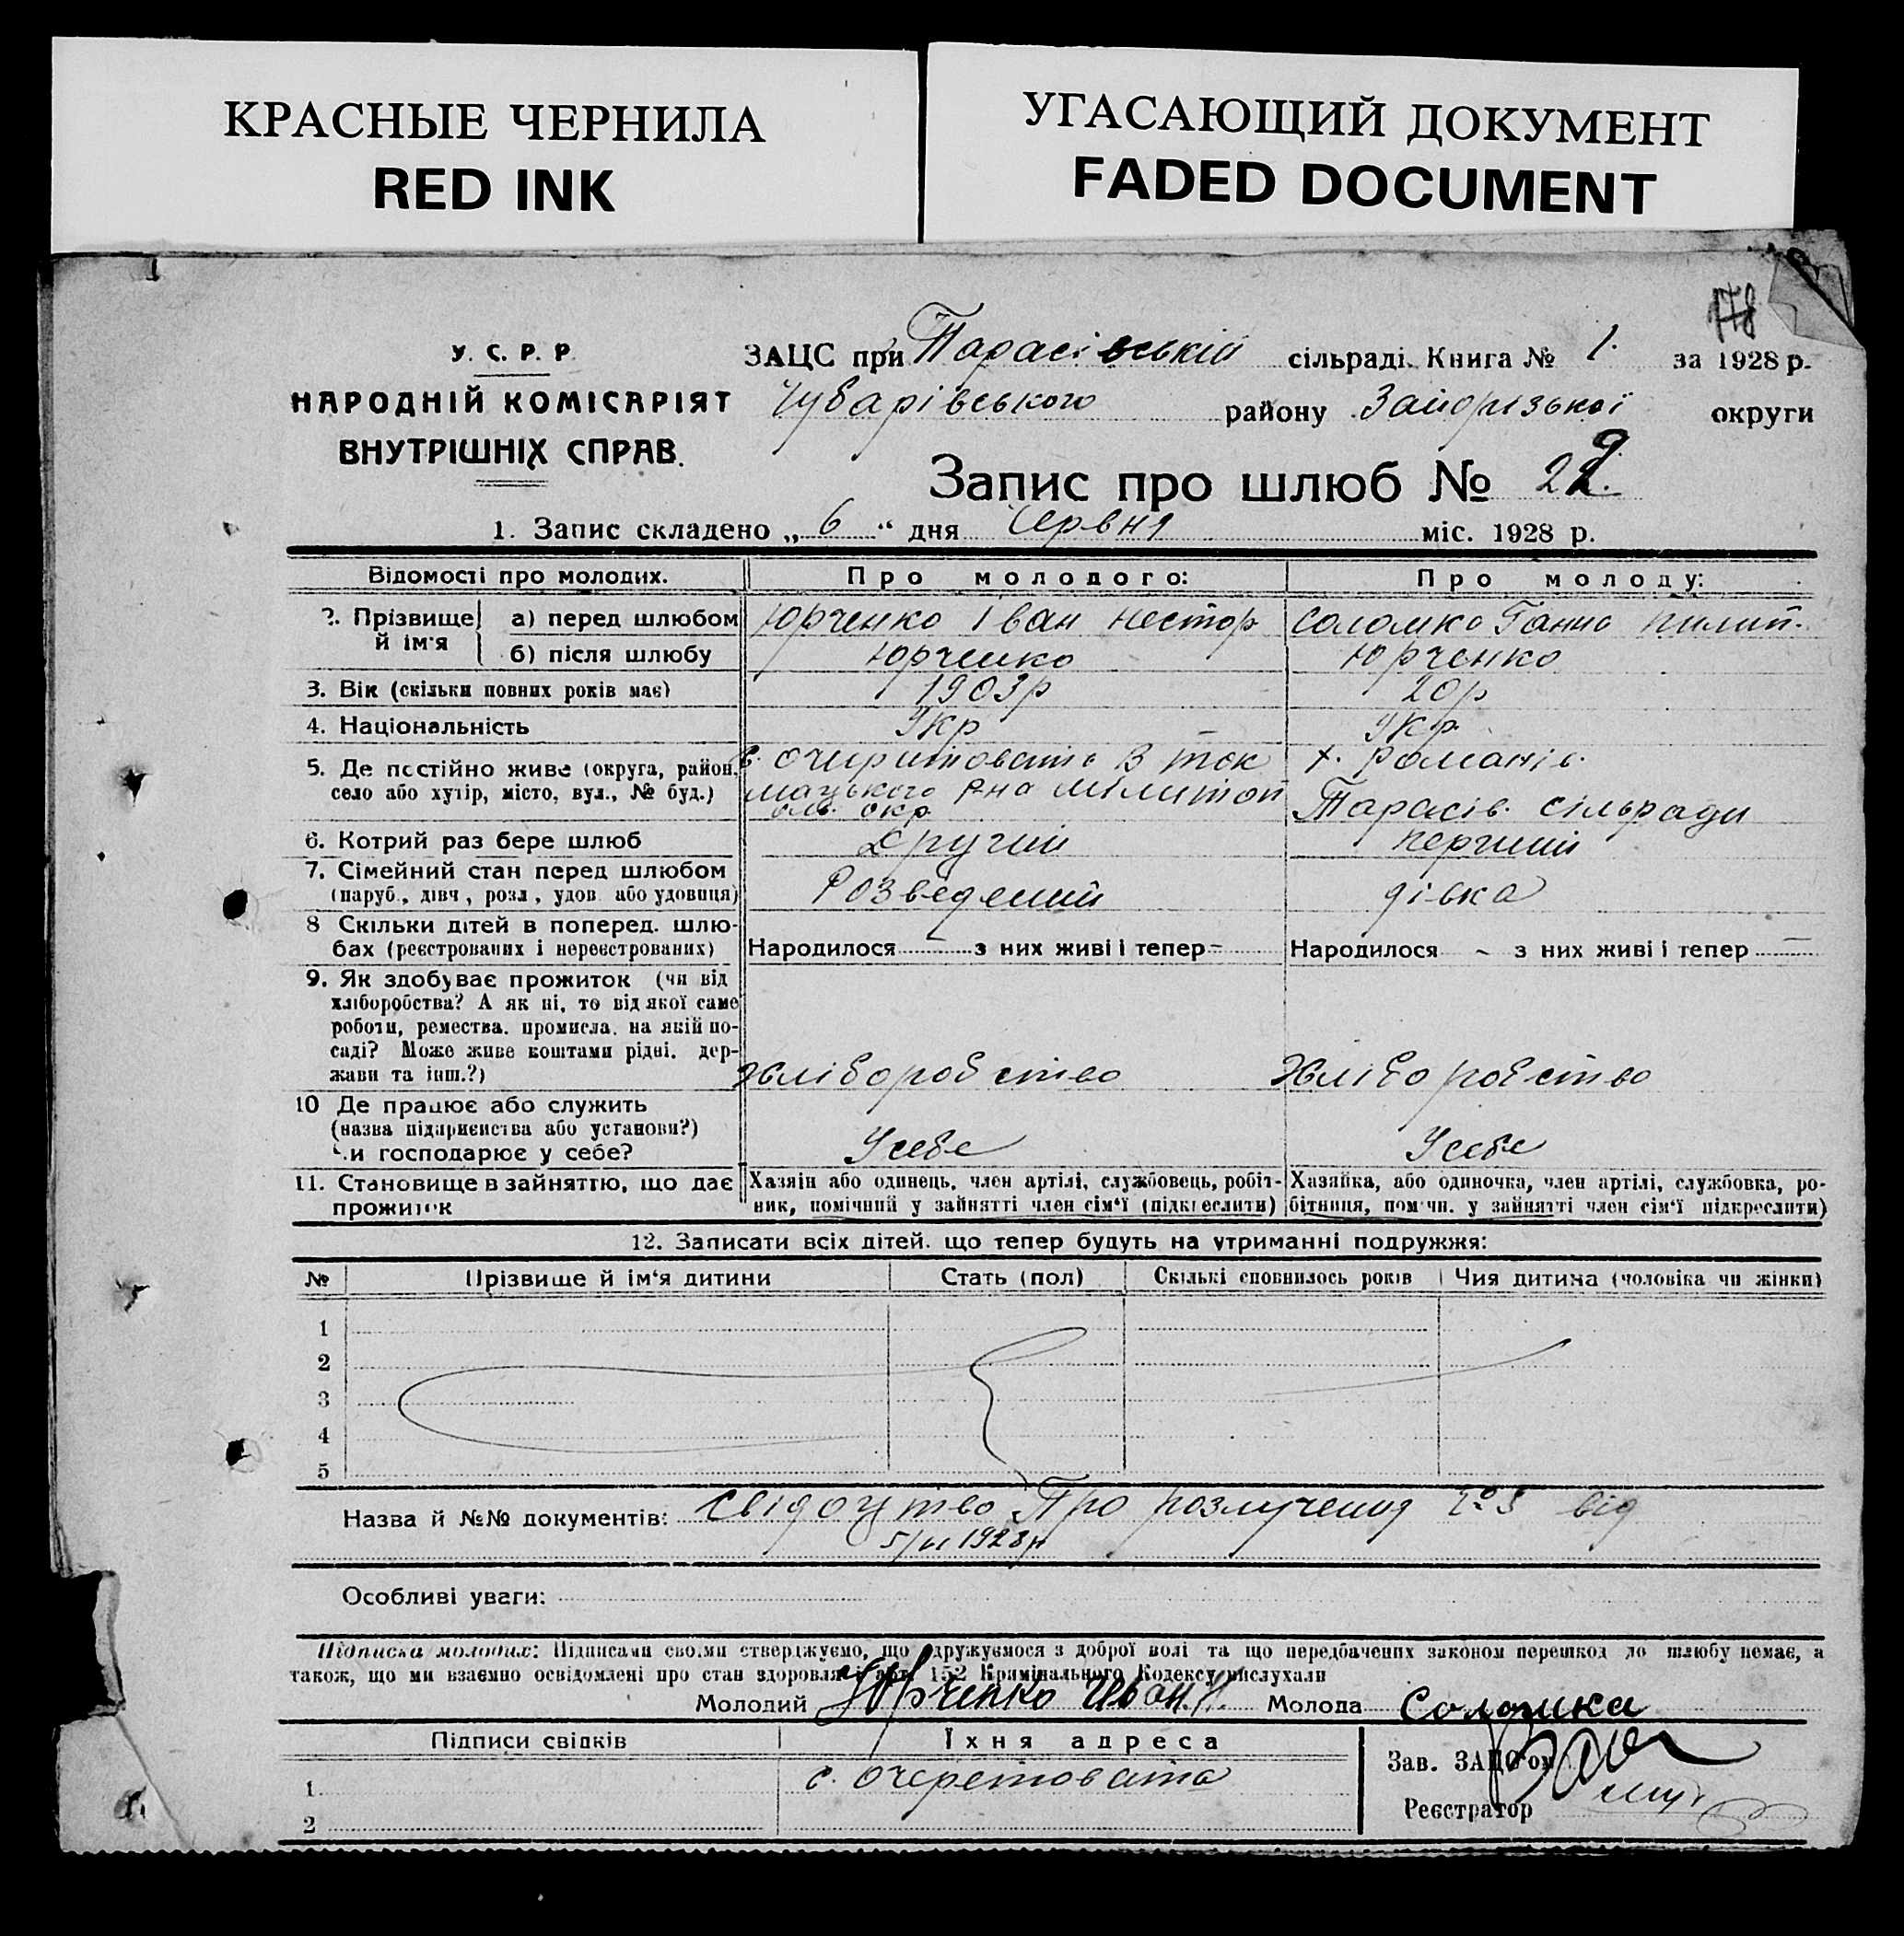 КРАСНЫЕ ЧЕРНИЛА
RED INK
УГАСАЮЩИЙ ДОКУМЕНТ
FADED DOCUMENT
У. С. Р. Р.
НАРОДНІЙ КОМІСАРІЯТ
ВНУТРІШНІХ СПРАВ.
ЗАЦС при Тарасівській сільраді. Книга № 1. за 1928 р.
Чубарівського району Запорізької округи
Запис про шлюб №
1. Запис складено „ 6 “ дня Червня міс. 1928 р.
Відомості про молодих. Про молодого: Про молоду:
2. Прізвище й ім'я а) перед шлюбом Юрченко Іван Нестор Соломка Ганна Пилип.
б) після шлюбу Юрченко Юрченко
3. Вік (скільки повних років має) 1903р 20р
4. Національність Укр Укр.
5. Де постійно живе (округа, район, с. Очиритовата В ток х. Романів.
село або хутір, місто, вул., № буд.) мацького Р-на Мілитоп Тарасів. сільради
оль. окр.
6. Котрий раз бере шлюб Другий перший
7. Сімейний стан перед шлюбом
(паруб., дівч., розл., удов. або удовиця) Розведений дівка
8 Скільки дітей в поперед. шлю-
бах (реєстрованих і нереєстрованих) Народилося – з них живі і тепер – Народилося – з них живі і тепер –
9. Як здобуває прожиток (чи від
хліборобства? А як ні, то від якої саме
роботи, ремества, промисла, на якій по-
саді? Може живе коштами рідні, дер-
жави та інш.?) Хліборобство Хліборобство
10 Де працює або служить
(назва підприємства або установи?)
Чи господарює у себе? Усебе Усебе
11. Становище в зайняттю, що дає Хазяїн або одинець, член артілі, службовець, робіт- Хазяйка, або одиночка, член артілі, службовка, ро-
прожиток ник, помічний у зайнятті член сім'ї (підкреслити) бітниця, помічн. у зайнятті член сім'ї підкреслити)
12. Записати всіх дітей, що тепер будуть на утриманні подружжя:
№ Прізвище й ім'я дитини Стать (пол) Скількі сповнилось років Чия дитина (чоловіка чи жінки)
1
2
3
4
5
Назва й №№ документів: Свідоцтво Про розлучення № 5 від
5/VI 1928р
Особливі уваги:
Підписка молодих: Підписами своїми стверджуємо, що дружуємося з доброї волі та що передбачених законом перешкод до шлюбу немає, а
також, що ми взаємно освідомлені про стан здоровля і арт. 152 Кримінального Кодексу вислухали
Молодий Юрченко Иван Н. Молода Соломка
Підписи свідків Їхня адреса
Зав. ЗАЦС'ом
1 с. Очеретовата
Реєстратор
2